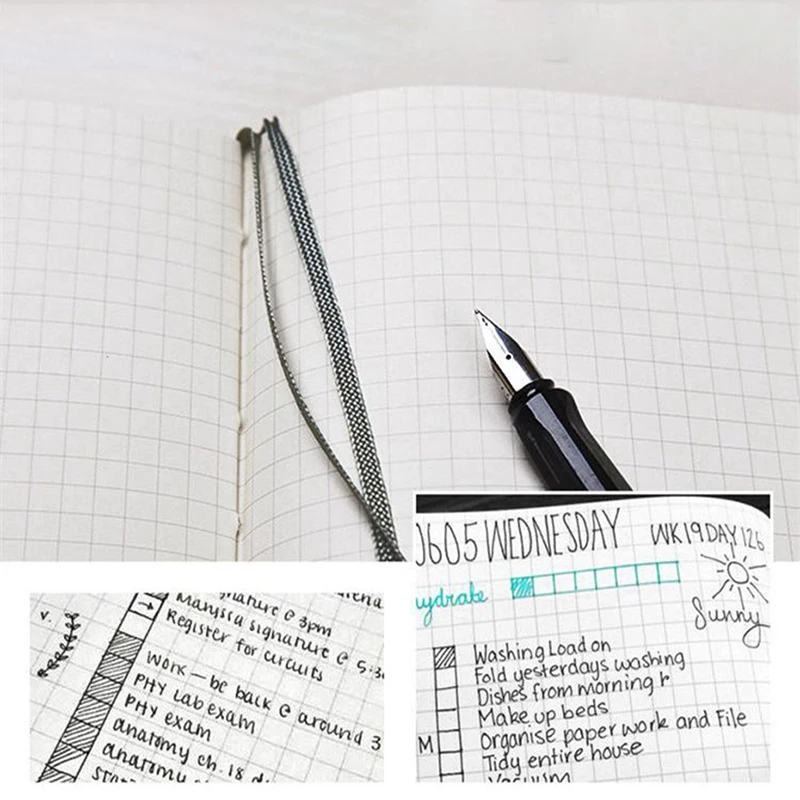 v.
signature @ 3pm
Manisca signature @ 5:3
Register for circuits
work — be back @ around 3
PHY Lab exam
PHY exam
anatomy ch. 18
anatomy
0605 WEDNESDAY WK19 DAY 126
hydrate
Sunny
Washing Load on
Fold yesterdays washing
Dishes from morning
Make up beds
M Organise paper work and File
Tidy entire house
Vacuum